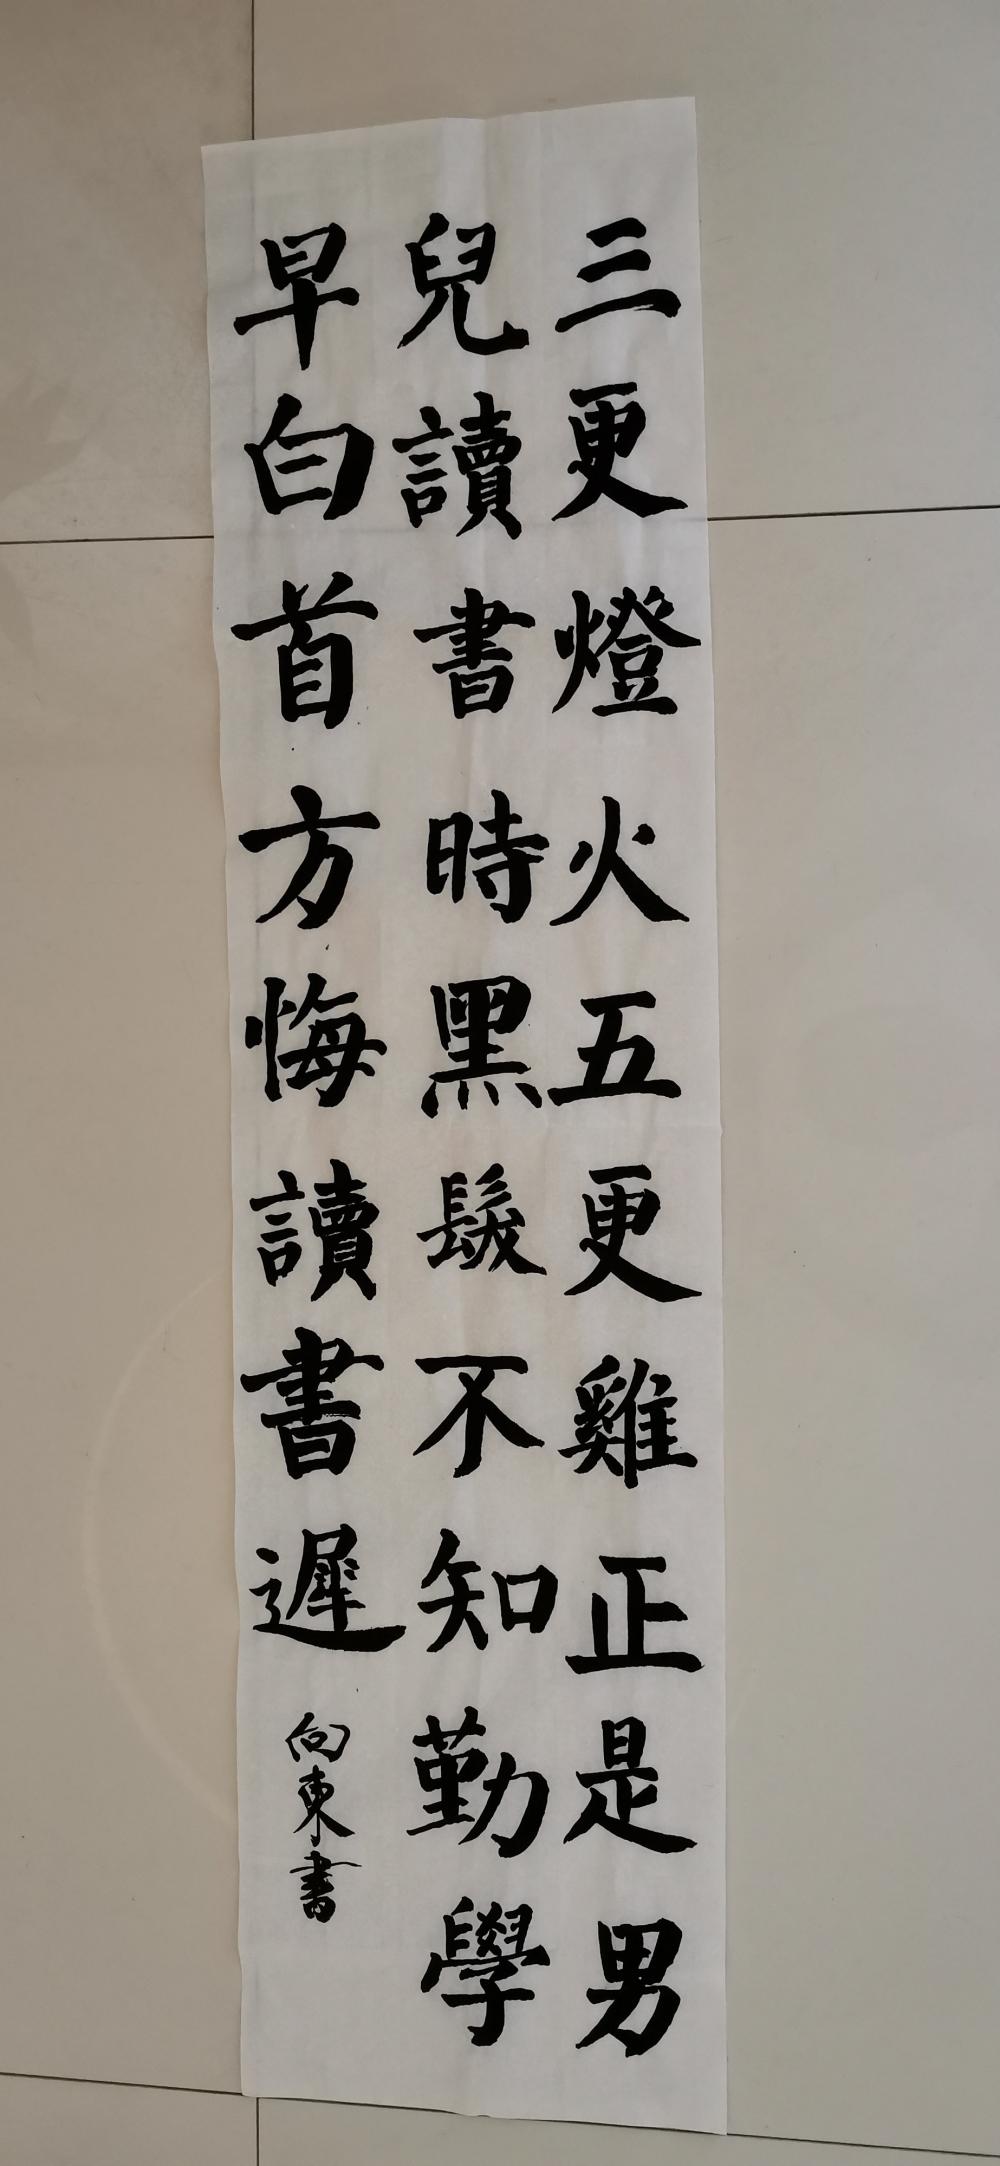 三更燈火五更雞正是男
兒讀書時黑髮不知勤學
早白首方悔讀書遲
向東書